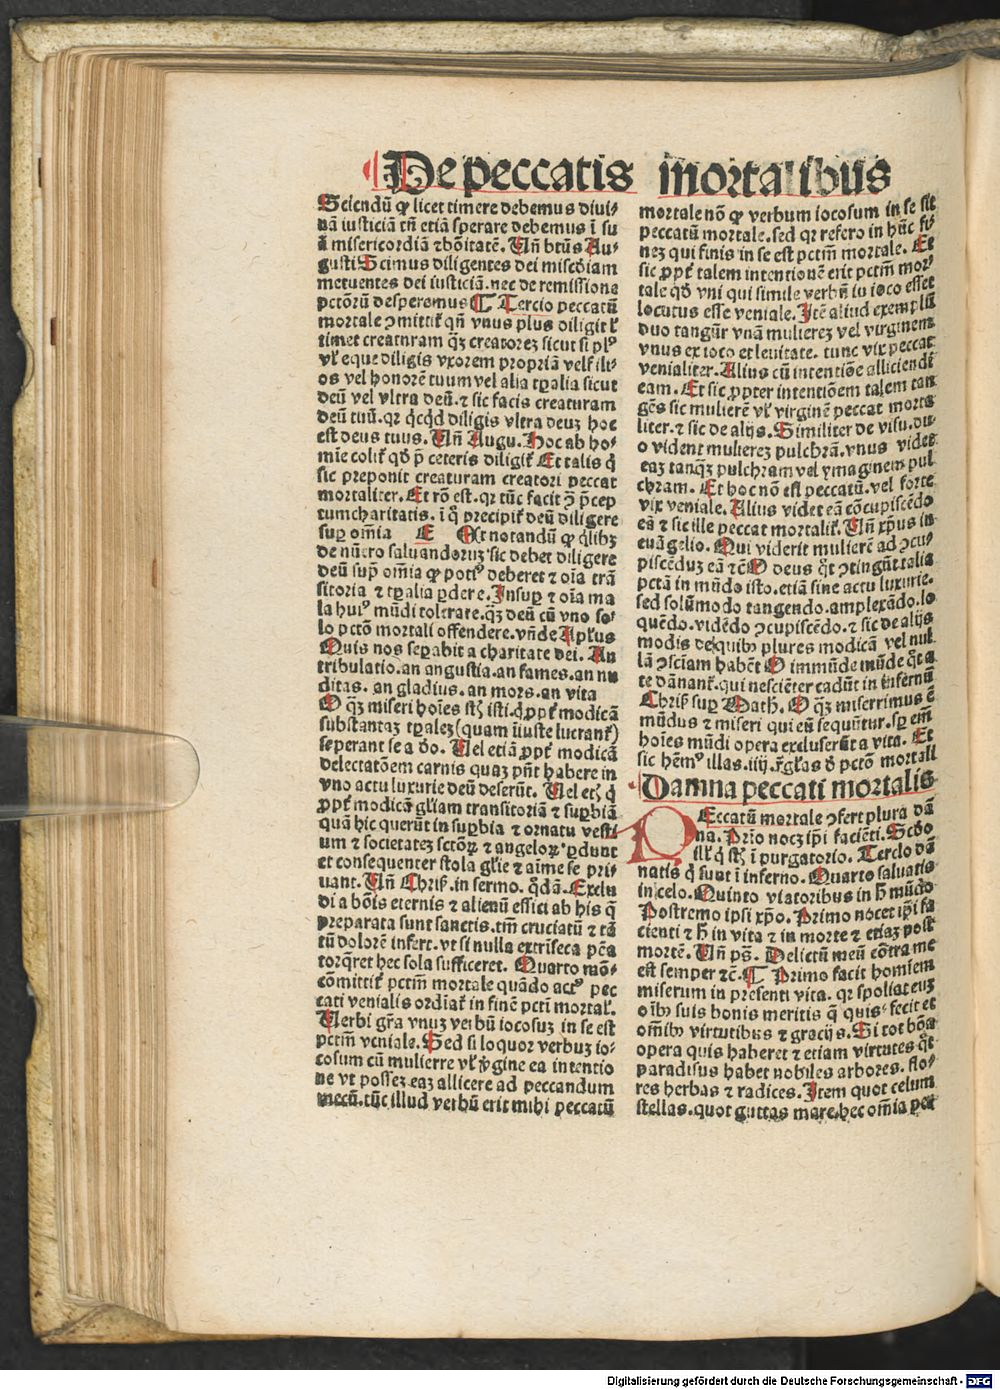 De peccatis mortalibus
Sciendū ꝙ licet timere debemus diui⸗
nā iusticiā tn̄ etiā sperare debemus ī su
ā misericordiā ⁊ bōitatē. Un̄ btūs Au⸗
gusti Scimus diligentes dei mīsediam
metuentes dei iusticiā. nec de remissione
pctōrū desperemus ¶ Tercio peccatū
mortale ꝯmittiť qn̄ vnus plus diligit ľ
timet creaturam qͣꝫ creatoreꝫ sicut si plꝰ
vľ eque diligis vxorem propriā velť ili⸗
os vel honorē tuum vel alia tꝑalia sicut
deū vel vltra deū. ⁊ sic facis creaturam
deū tuū. qꝛ qͥcqͥd diligis vltra deuꝫ hoc
est deus tuus. Un̄ Augu. Hoc ab ho⸗
mīe coliť qd̓ p̄ ceteris diligiť Et talis qͥ
sic preponit creaturam creatori peccat
mortaliter. Et rō est. qꝛ tūc facit ꝯ p̄cep
tum charitatis. ī qͦ precipiť deū diligere
suꝑ om̄ia E Et notandū ꝙ qͥlibꝫ
de nūero saluandoruꝫ sic debet diligere
deū suꝑ om̄ia ꝙ potiꝰ deberet ⁊ oīa trā
sitoria ⁊ tꝑalia ꝑdere. Insuꝑ ⁊ oīa ma
la huiꝰ mūdi tolerare. qͣꝫ deū cū vno so⸗
lo pctō mortali offendere. vn̄de Aplʼus
Quis nos seꝑabit a charitate dei. An
tribulatio. an angustia. an fames. an nu
ditas. an gladius. an mors. an vita
O qͣꝫ miseri hoīes stꝫ isti. qͥ ꝓpť modicā
substantiaꝫ tꝑaleꝫ (quam iīuste lucranť)
seperant se a dō. Uel etiā ꝓpť modicā
delectatōem carnis quaꝫ pn̄t habere in
vno actu luxurie deū deserūt. Uel etꝫ qͥ
ꝓpť modicā gľiam transitoriā ⁊ suꝑbiā
quā hic querūt in suꝑbia ⁊ ornatu vesti
um ⁊ societateꝫ sctōꝝ ⁊ angeloꝝ ꝑdunt
et consequenter stola glʼie ⁊ aīme se pri⸗
uant. Un̄ Chriſ. in sermo. qͦdā. Exclu
di a bōis eternis ⁊ alienū effici ab his q̄
preparata sunt sanctis. tm̄ cruciatū ⁊ tā
tū dolorē infert. vt si nulla extrīseca pēa
torqͣret hec sola sufficeret. Quarto mō⸗
cōmittiť pctm̄ mortale quādo actꝰ pec
cati venialis ordīať in finē pcti mortaľ.
Uerbi grā vnuꝫ verbū iocosuꝫ in se est
pctm̄ veniale. Sed si loquor verbuꝫ io⸗
cosum cū mulierre vľ v̓gine ea intentio
ne vt posseꝫ eaꝫ allicere ad peccandum
mecū. tūc illud verbū erit mihi peccatū
mortale nō ꝙ verbum iocosum in se sit
peccatū mortale. sed qꝛ refero in hūc fi⸗
neꝫ qui finis in se est pctm̄ mortale. Et
sic ꝓpť talem intentionē erit pctm̄ mor⸗
tale qd̓ vni qui simile verbū in ioco esset
locutus esse veniale. Itē aliud exemplū
duo tangūr vnā mulireꝫ vel virginem
vnus ex ioco et leuitate. tunc vix peccat
venialiter. Alius cū intentiōe alliciendi
eam. Et sic ꝓpter intentiōem talem tan
gēs sic mulierē vľ virginē peccat morta
liter. ⁊ sic de alijs. Similiter de visu. du⸗
o vident mulireꝫ pulchrā. vnus videt
eaꝫ tanqͣꝫ pulchram vel ymaginem pul
chram. Et hoc nō est peccatū. vel forte
vix veniale. Alius videt eā cōcupiscēdo
eā ⁊ sic ille peccat mortaliť. Un̄ xp̄us in
euāgelio. Qui viderit mulierē ad ꝯcu⸗
piscēduꝫ eā ⁊c̄ O deus qͦt ꝯtingūt talia
pctā in mūdo isto. etiā sine actu luxurie.
sed solūmodo tangendo. amplexādo. lo
quēdo. vidēdo ꝯcupiscēdo. ⁊ sic de alijs
modis de quibꝰ plures modicā vel nul
lā ꝯsciam habēt O immūde mūde qͦt a
te dānanť. qui nesciēter cadūt in infernū
Chriſ suꝑ Math. O qͣꝫ miserrimus ē
mūdus ⁊ miseri qui eū sequūtur. sꝑ em̄
hoīes mūdi opera excluserūt a vita. Et
sic hēmꝰ illas. iiij. rľglas d̓ pctō mortali
Damna peccati mortalis
PEccatū mortale ꝯfert plura dā
na. Prīo nocꝫ ip̄i faciēti. Scdō
illʼ qͥ stꝫ ī purgatorio. Tercio dā
natis qͥ sunt ī inferno. Quarto saluatis
in celo. Quinto viatoribus in h̄ mūdo
Postremo ipsi xp̄o. Primo nocet ip̄i fa
cienti ⁊ h̄ in vita ⁊ in morte ⁊ etiaꝫ post
mortē. Un̄ pš. Delictū meū cōtra me
est semper ⁊c̄. ¶ Primo facit homīem
miserum in presenti vita. qꝛ spoliat euꝫ
oībꝰ suis bonis meritis q̄ quis fecit et
om̄ibꝰ virtutibus ⁊ gracijs. Si tot bōa
opera quis haberet ⁊ etiam virtutes qͦt
paradisus habet nobiles arbores. flo⸗
res herbas ⁊ radices. Item quot celum
stellas. quot guttas mare. hec om̄ia per
Digitalisierung gefördert durch die Deutsche Forschungsgemeinschaft - DFG